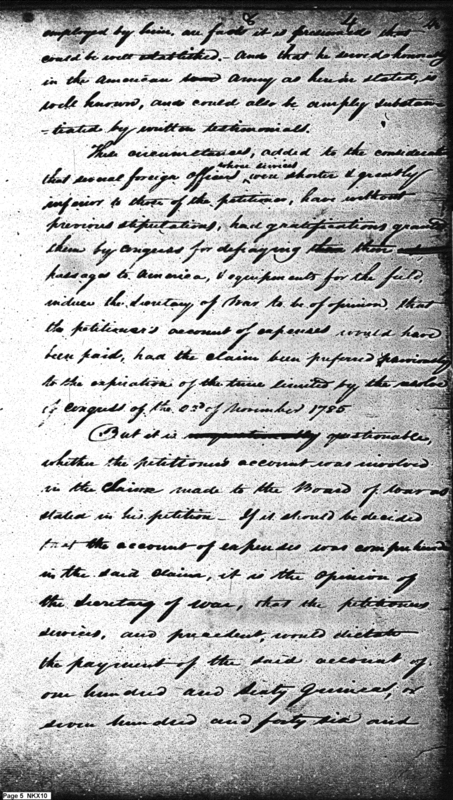 4
employed by him, are facts it is presumed that
could be well established. - And that he served honorably
in the American Army as herein stated, is
well known, and could also be amply substan-
-tiated by written testimonials.
These circumstances, added to the consideration
that several foreign officers whose services were shorter & greatly
inferior to those of the petitioner, have without
previous stipulations, had gratifications granted
them by Congress for defraying their
passages to America, & equipments for the field,
induce the Secretary of War to be of opinion, that
the petitioner's account of expenses would have
been paid, had the claim been preferred previously
to the expiration of the time limited by the resolve
of Congress of the 02d of November 1785
But it is questionable,
whether the petitioners account was involved
in the claims made to the Board of War as
stated in his petition - If it should be decided
that the account of expenses was comprehended
in the said claims, it is the Opinion of
the Secretary of War, that the petitioners
services, and precedent, would dictate
the payment of the said account of
one hundred and Sixty Guineas, or
seven hundred and forty six and
Page 5 NKX10